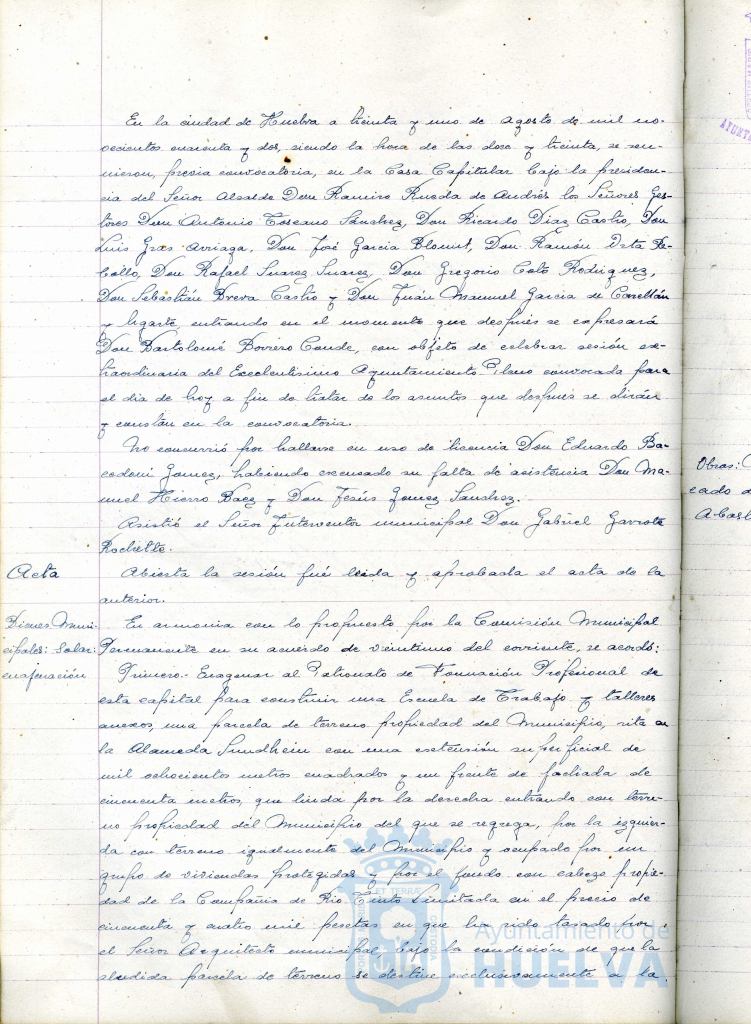 En la ciudad de Huelva a treinta y uno de agosto de mil no-
vecientos cuarenta y dos, siendo la hora de las doce y treinta, se reu-
nieron, previa convocatoria, en la Casa Capitular bajo la presiden-
cia del Señor Alcalde Don Ramiro Rueda de Andrés los Señores Ges-
tores Don Antonio Toscano Sánchez, Don Ricardo Díaz Castro, Don
Luis Gras Arriaga, Don José García Blount, Don Ramón Orta Re-
bollo, Don Rafael Suarez Suarez, Don Gregorio Coto Rodriguez,
Don Sebastián Breva Castro y Don Juán Manuel Garcia de
y Ugarte, entrando en el momento que después se expresará
Don Bartolomé Borrero Conde, con objeto de celebrar sesión ex-
traordinaria del Excelentisimo Ayuntamiento Pleno convocada para
el dia de hoy a fin de tratar de los asuntos que despues se dirán
y constan en la convocatoria.
No concurrió por hallarse en uso de licencia Don Eduardo Ba-
codoni Gomez, habiendo excusado su falta de asistencia Don Ma-
nuel Hierro Baez y Don Jesús Gomez Sanchez.
Asistió el Señor Interventor municipal Don Gabriel Garrote
Rochette.
Acta
Abierta la sesión fué leida y aprobada el acta de la
anterior.
Bienes Muni-
cipales: Solar:
enajenación
En armonia con lo propuesto por la Comisión Municipal
Permanente en su acuerdo de veintiuno del corriente, se acordó:
Primero.- Enagenar al Patronato de Formación Profesional de
esta capital para construir una Escuela de Trabajo y talleres
anexos, una parcela de terreno propiedad del Municipio, sita en
la Alameda Sundhein con una extensión superficial de
mil ochocientos metros cuadrados y un frente de fachada de
cincuenta metros, que linda por la derecha entrando con terre-
no propiedad del Municipio del que se segrega, por la izquier-
da con terreno igualmente del Municipio y ocupado por un
grupo de viviendas protegidas y por el fondo con cabezo propie-
dad de la Compañia de Rio Tinto Limitada en el precio de
cincuenta y cuatro mil pesetas en que ha sido tasado por
el Señor Arquitecto municipal, bajo la condición de que la
aludida parcela de terreno se destine exclusivamente a la
Obras:
cado d
Abast
Ayuntamiento de
HUELVA